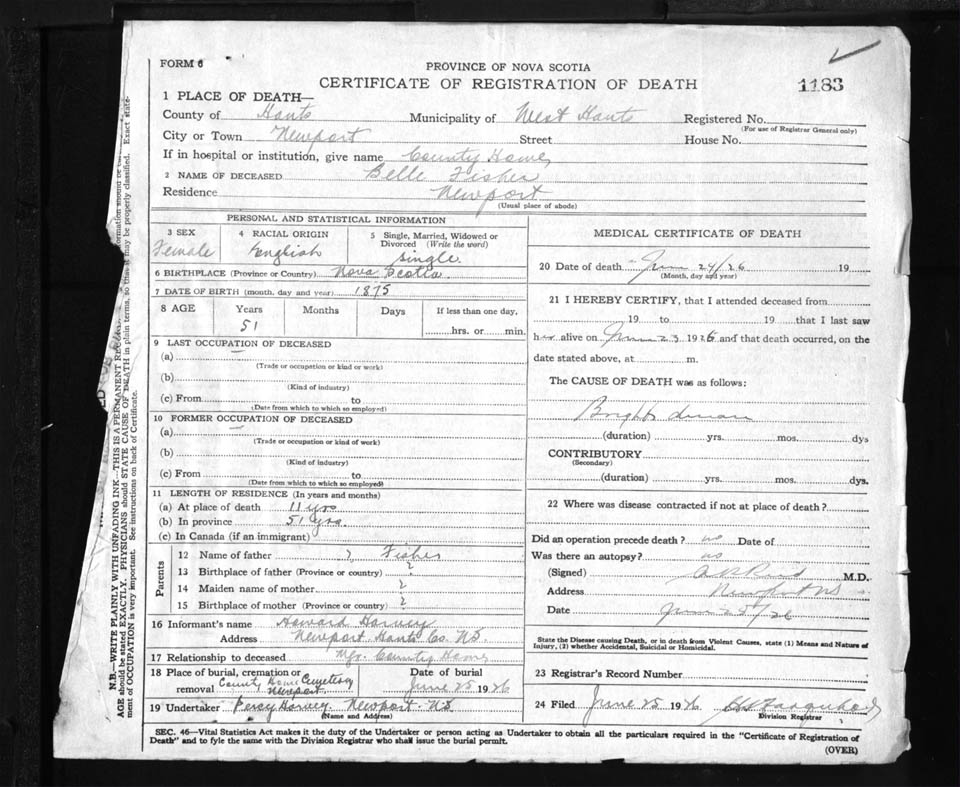 FORM 6
PROVINCE OF NOVA SCOTIA
CERTIFICATE OF REGISTRATION OF DEATH
1183
1 PLACE OF DEATH—
County of Hants Municipality of West Hants Registered No.
(For use of Registrar General only)
City or Town Newport Street House No.
If in hospital or institution, give name County Home
2 NAME OF DECEASED Belle Fisher
Residence Newport
(Usual place of abode)
PERSONAL AND STATISTICAL INFORMATION
3 SEX Female
4 RACIAL ORIGIN English
5 Single, Married, Widowed or Divorced (Write the word) Single
6 BIRTHPLACE (Province or Country) Nova Scotia
7 DATE OF BIRTH (month, day and year) 1875
8 AGE Years Months Days If less than one day,
51 hrs. or min.
9 LAST OCCUPATION OF DECEASED
(a) —
(Trade or occupation or kind or work)
(b)
(Kind of industry)
(c) From to
(Date from which to which so employed)
10 FORMER OCCUPATION OF DECEASED
(a) —
(Trade or occupation or kind of work)
(b)
(Kind of industry)
(c) From to
(Date from which to which so employed)
11 LENGTH OF RESIDENCE (In years and months)
(a) At place of death 11 yrs
(b) In province 51 yrs.
(c) In Canada (if an immigrant)
Parents
12 Name of father ? Fisher
13 Birthplace of father (Province or country) ?
14 Maiden name of mother ?
15 Birthplace of mother (Province or country) ?
16 Informant's name Howard Harvey
Address Newport Hants Co. N.S
17 Relationship to deceased Mgr. County Home
18 Place of burial, cremation or removal County Home Cemetery Newport
Date of burial June 25 1926
19 Undertaker Percy Harvey Newport N.S
(Name and Address)
MEDICAL CERTIFICATE OF DEATH
20 Date of death June 24/26 19
(Month, day and year)
21 I HEREBY CERTIFY, that I attended deceased from
19 to 19 that I last saw
her alive on June 23 1926 and that death occurred, on the
date stated above, at m.
The CAUSE OF DEATH was as follows:
Brights disease
(duration) yrs. mos. dys
CONTRIBUTORY
(Secondary)
(duration) yrs. mos. dys.
22 Where was disease contracted if not at place of death?
Did an operation precede death? no Date of
Was there an autopsy? no
(Signed) M.D.
Address Newport NS
Date June 25/26
State the Disease causing Death, or in death from Violent Causes, state (1) Means and Nature of
Injury, (2) whether Accidental, Suicidal or Homicidal.
23 Registrar's Record Number
24 Filed June 25 1926
Division Registrar
SEC. 46—Vital Statistics Act makes it the duty of the Undertaker or person acting as Undertaker to obtain all the particulars required in the "Certificate of Registration of
Death" and to fyle the same with the Division Registrar who shall issue the burial permit.
(OVER)
N.B.—WRITE PLAINLY WITH UNFADING INK—THIS IS A PERMANENT
AGE should be stated EXACTLY. PHYSICIANS should STATE CAUSE OF DEATH in plain terms, so that it may be properly classified. Exact state-
ment of OCCUPATION is very important. See instructions on back of Certificate.